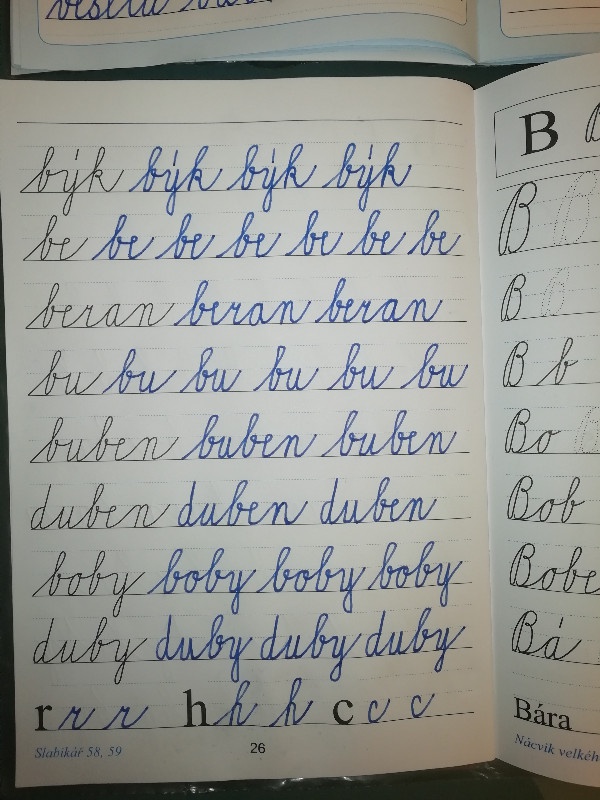 býk býk býk býk
be be be be be be be
beran beran beran
bu bu bu bu bu bu
buben buben buben
duben duben duben
boby boby boby boby
duby duby duby duby
r r r h h h c c c
Slabikář 58, 59
26
B
B B
B B
B b
Bo
Bob
Bobe
Bá
Bára
Nácvik velkéh